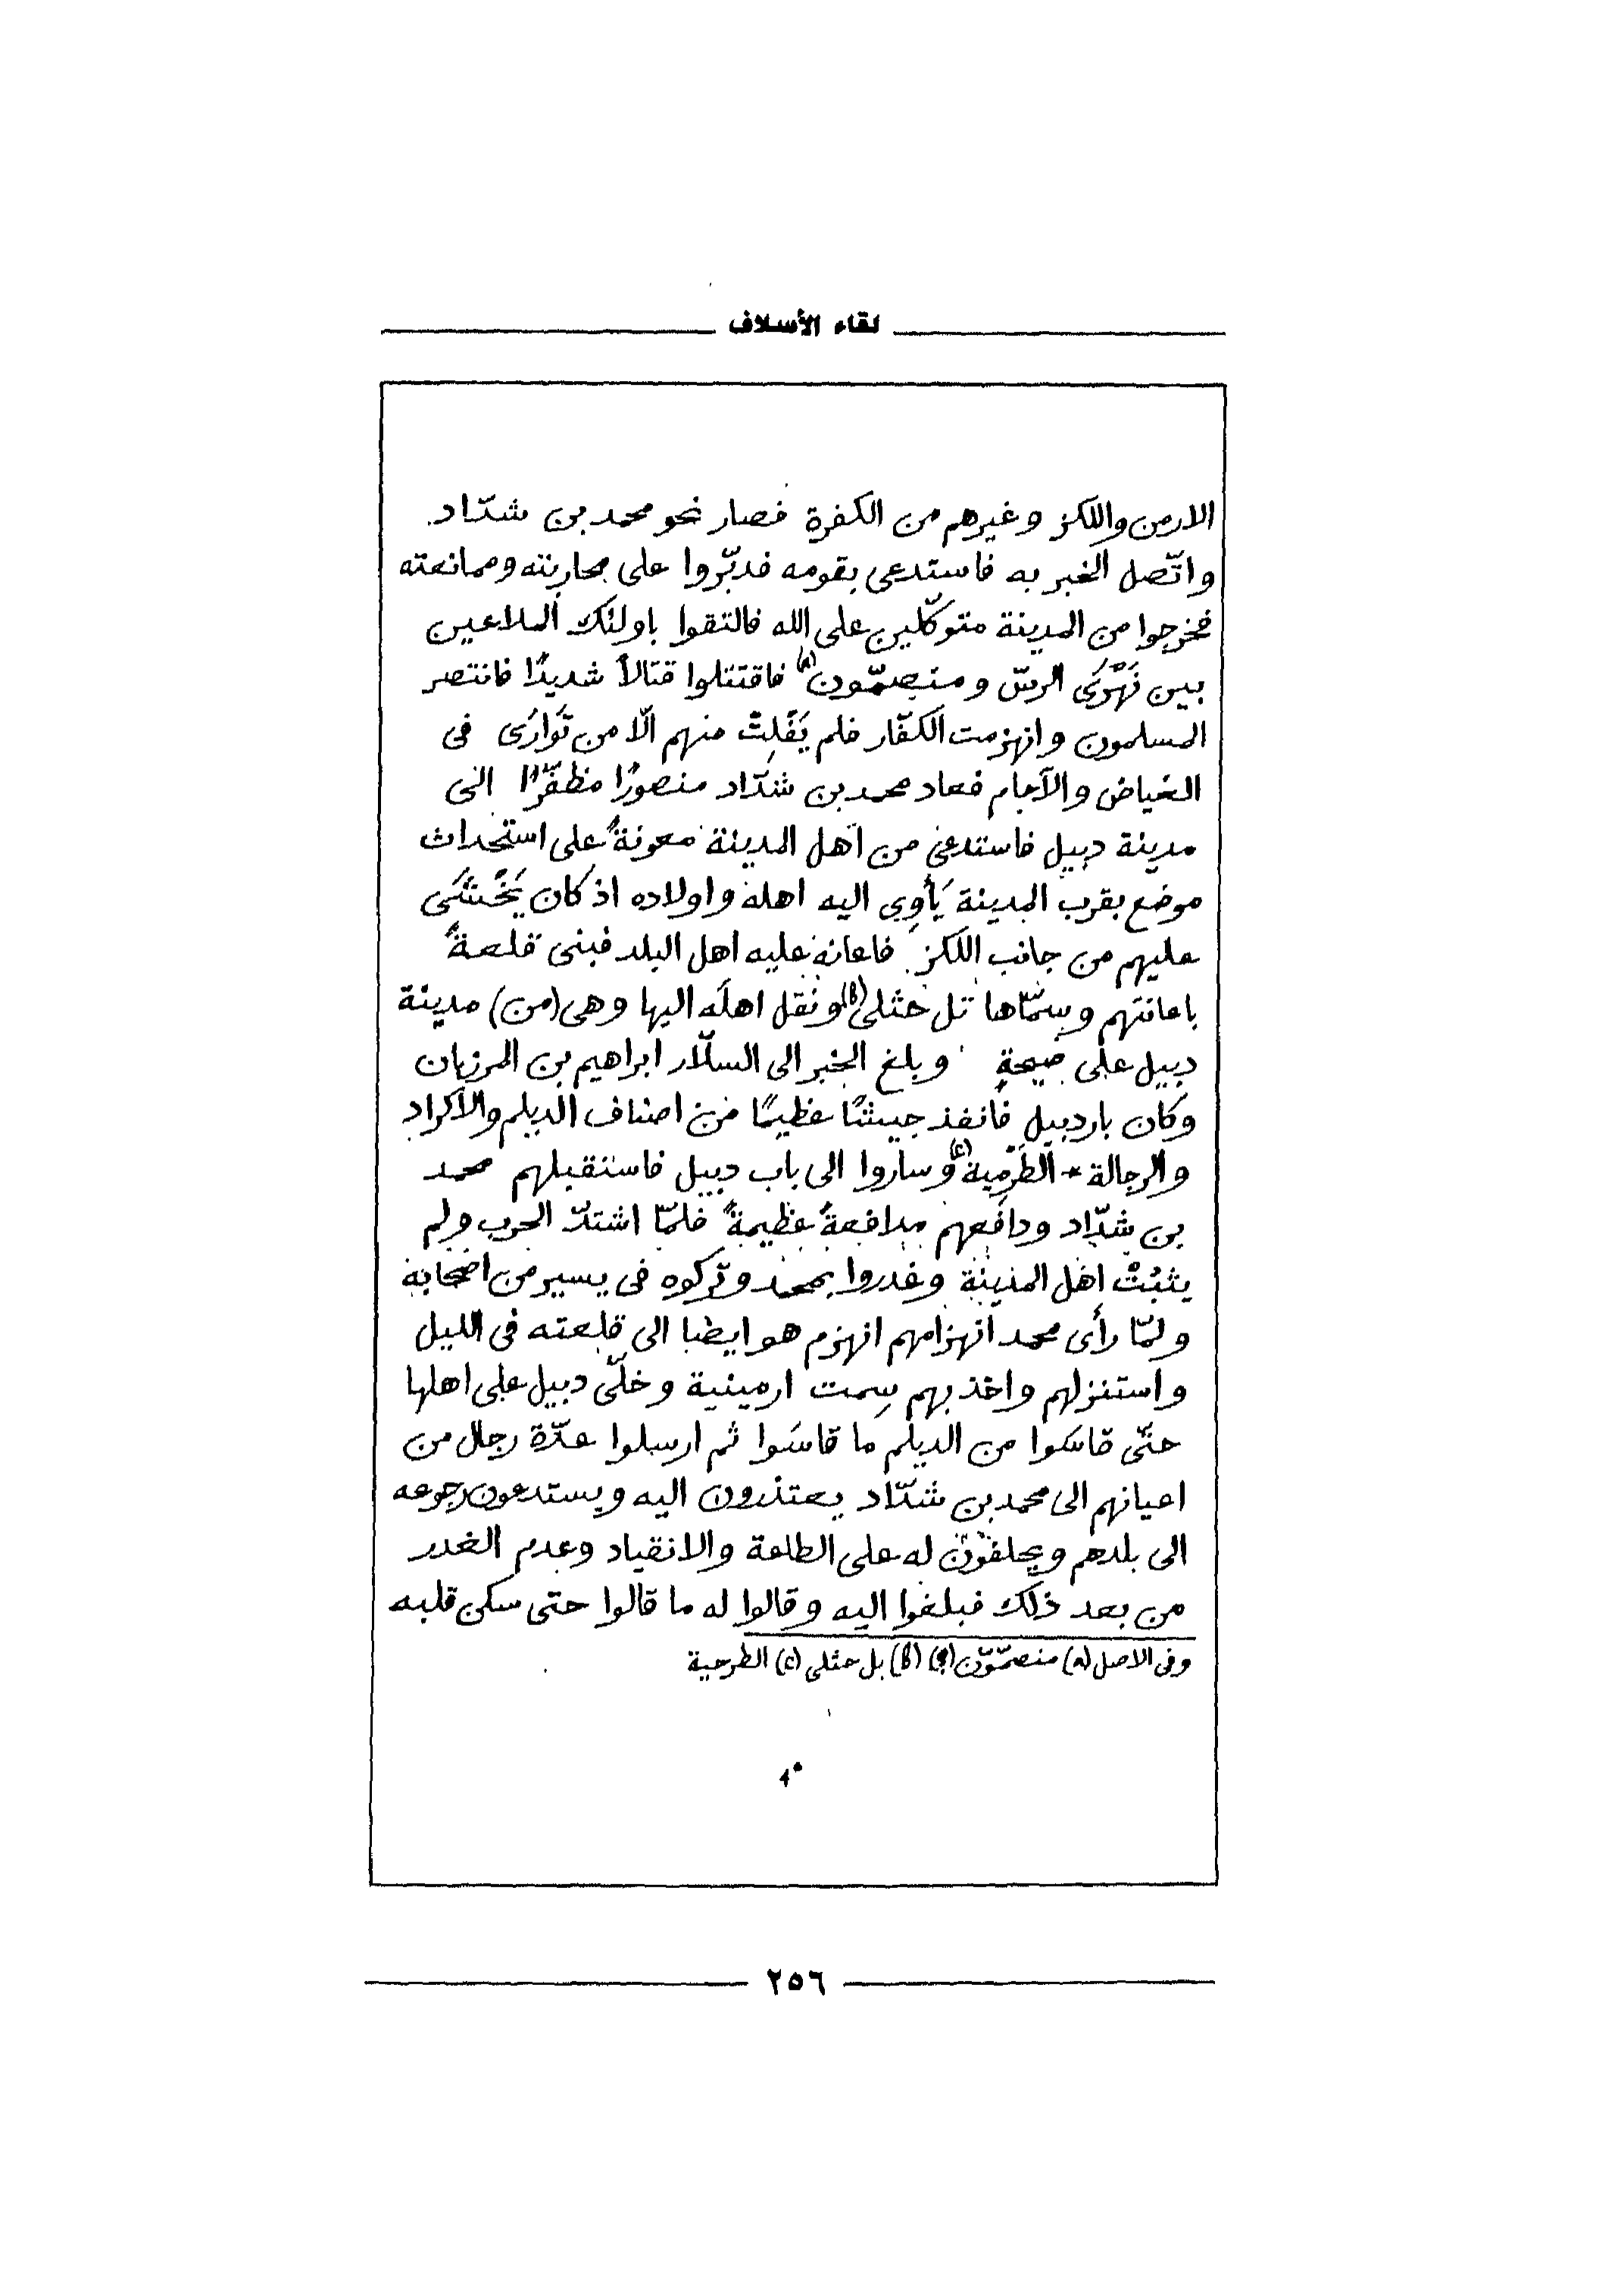 لقاء الأسلاف
الارمن واللكز وغيرهم من الكفرة فصار نحو محمد بن شدّاد.
واتّصل الخبر به فاستدعى بقومه فدبّروا على محاربته وممانعته
فخرجوا من المدينة متوكّلين على الله فالتقوا باولئك الملاعين
بين نَهْرَى الرسّ و منصمّون(a) فاقتتلوا قتالاً شديدًا فانتصر
المسلمون وانهزمت الكفّار فلم يَفْلِتْ منهم الّا من تَوارَى فى
الغياض والآجام فعاد محمد بن شدّاد منصورًا مظفّرًا الى
مدينة دبيل فاستدعى من اهل المدينة معونةً على استحداث
موضع بقرب المدينة يَأوِى اليه اهله واولاده اذ كان يَخْشَى
عليهم من جانب اللكز فاعانه عليه اهل البلد فبنى قلعةً
باعانتهم وسمّاها تل حثلى(b) ونقل اهله اليها وهى (من) مدينة
دبيل على صيحةٍ وبلغ الخبر الى السلّار ابراهيم بن المرزبان
وكان باردبيل فانفذ جيشًا عظيمًا من اصناف الديلم والاكراد
والرجالة * الطَرْمية(c) وساروا الى باب دبيل فاستقبلهم محمد
بن شدّاد ودافعهم مدافعةً عظيمةً فلمّا اشتدّ الحرب ولم
يثبُتْ اهل المدينة وغدروا بمحمد وتركوه فى يسير من اصحابه
ولمّا رأى محمد انهزامهم انهزم هو ايضا الى قلعته فى الليل
واستنزلهم واخذ بهم سِمت ارمينية وخلّى دبيل على اهلها
حتّى قاسَوا من الديلم ما قاسَوا ثم ارسلوا عدّة رجال من
اعيانهم الى محمد بن شدّاد يعتذرون اليه ويستدعون رجوعه
الى بلدهم ويحلفون له على الطاعة والانقياد وعدم الغدر
من بعد ذلك فبلغوا اليه وقالوا له ما قالوا حتى سكن قلبه
وفى الاصل (a) منصمّوّن (b) بل حثلى (c) الطرحية
٢٥٦